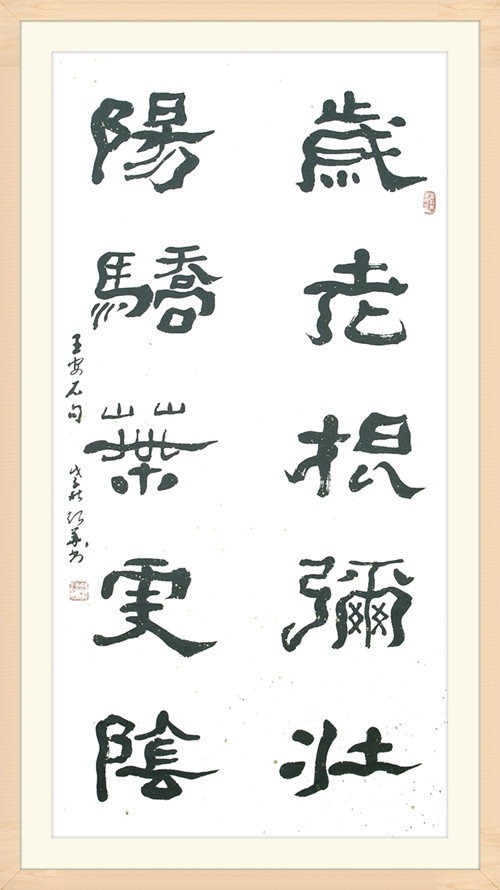 歲老根彌壯
陽驕葉更陰
王安石句
戊子秋